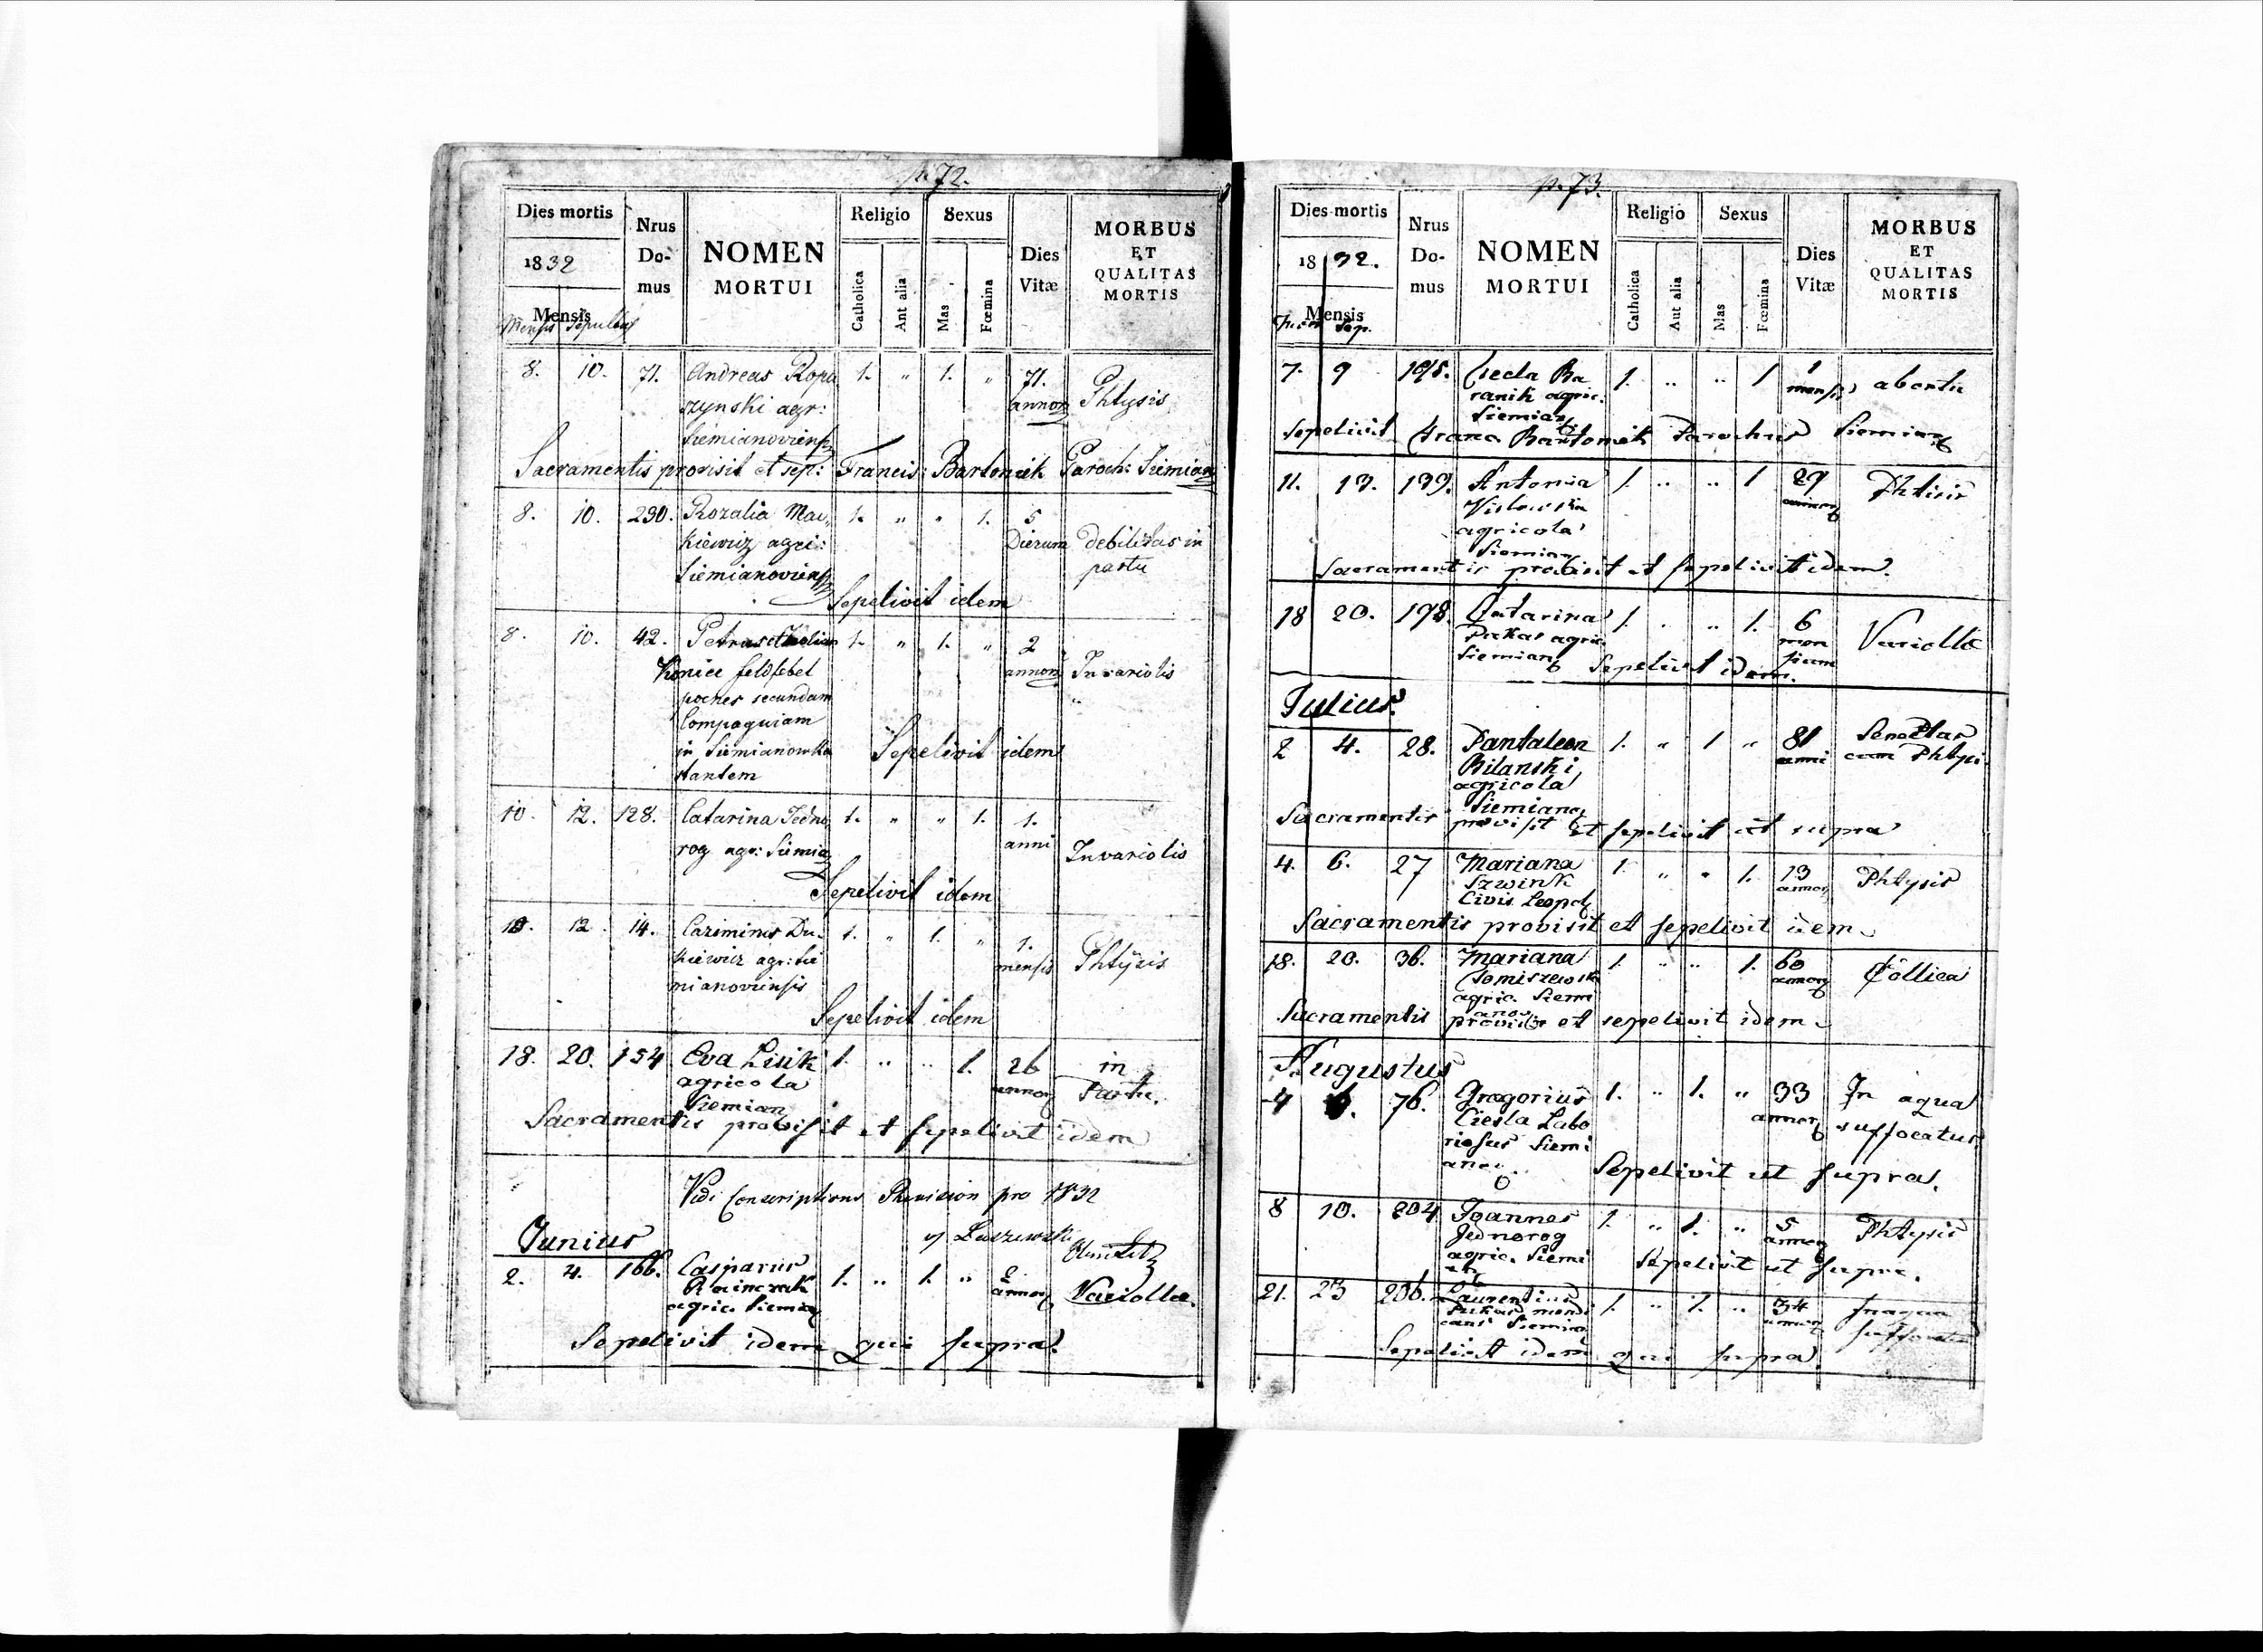 p. 72.
Dies mortis Nrus Do- mus NOMEN MORTUI Religio Sexus Dies Vitæ MORBUS ET QUALITAS MORTIS
1832
Catholica Aut alia Mas Fœmina
Mensis
Mensis Sepultus
8. 10. 71. Andreas Ropa 1. " 1. " 71. Phtysis
szynski agr: annor
Siemianoviens
Sacramentis provisit et sep: Francis: Bartoniek Paroch: Siemian
8. 10. 230. Rozalia Mac 1. " " 1. 5
kiewicz agri: Dierum debilitas in
Siemianoviens partu
Sepelivit idem
8. 10. 42. Petrus 1. " 1. " 2
feldfebel annor In variolis
penes secundam
Compagniam
in Siemianowka Sepelivit idem
stantem
10. 12. 128. Catarina Jedno 1. " " 1. 1.
rog agr: Siemia anni In variolis
Sepelivit idem
10. 12. 14. Casimirus Du- 1. " 1. " 1.
kiewicz agr: Sie mensis Phtysis
mianoviensis
Sepelivit idem
18. 20. 154 Eva Lisik 1. " " 1. 26 in
agricola annor Partu.
Siemian
Sacramentis provisit et sepelivit idem
Vidi Conscriptions Revision pro 1832
Junius
2. 4. 166. Casparus 1. " 1. " 2 Variollae.
Rainczak annor
agric. Siemian
Sepelivit idem qui supra.
p. 73.
Dies mortis Nrus Do- mus NOMEN MORTUI Religio Sexus Dies Vitæ MORBUS ET QUALITAS MORTIS
1832.
Catholica Aut alia Mas Fœmina
Mensis
Sep.
7. 9 195. Ba 1. " " 1 1 abortu
ranik agric. mensis
Siemian
Sepelivit Franc Bartoniek Parochus Siemian
11. 13. 139. Antonia 1. " " 1 29 Phtisis
Vislowska annor
agricola
Siemian
Sacramentis provisit et sepelivit idem.
18 20. 198. Catarina 1. " " 1. 6 Variollae
Pukas agric. men
Siemian Sepelivit idem. sium
Julius.
2 4. 28. Pantaleon 1. " 1 " 81 Senectas
Bilanski anni cum Phtysi
agricola
Siemian
Sacramentis provisit et sepelivit ut supra
4. 6. 27 Mariana 1. " " 1. 13 Phtysis
Szwink annor
Civis Leopol
Sacramentis provisit et sepelivit idem
18. 20. 36. Mariana 1. " " 1. 60 Collica
Tomiszewska annor
agric. Siemi
anov.
Sacramentis provisit et sepelivit idem
Augustus
4 6. 76. Gregorius 1. " 1. " 33 In aqua
Ciesla Labo annor suffocatus
riosus Siemi
anov.
Sepelivit ut supra.
8 10. 204 Joannes 1. " 1. " 5 Phtysis
Jednorog annor
agric. Siemi
Sepelivit ut supra.
21. 23 206. Laurentius 1. " 1. " 34 In aqua
Pukas mendi annor suffocatus
cans Siemian
Sepelivit idem qui supra